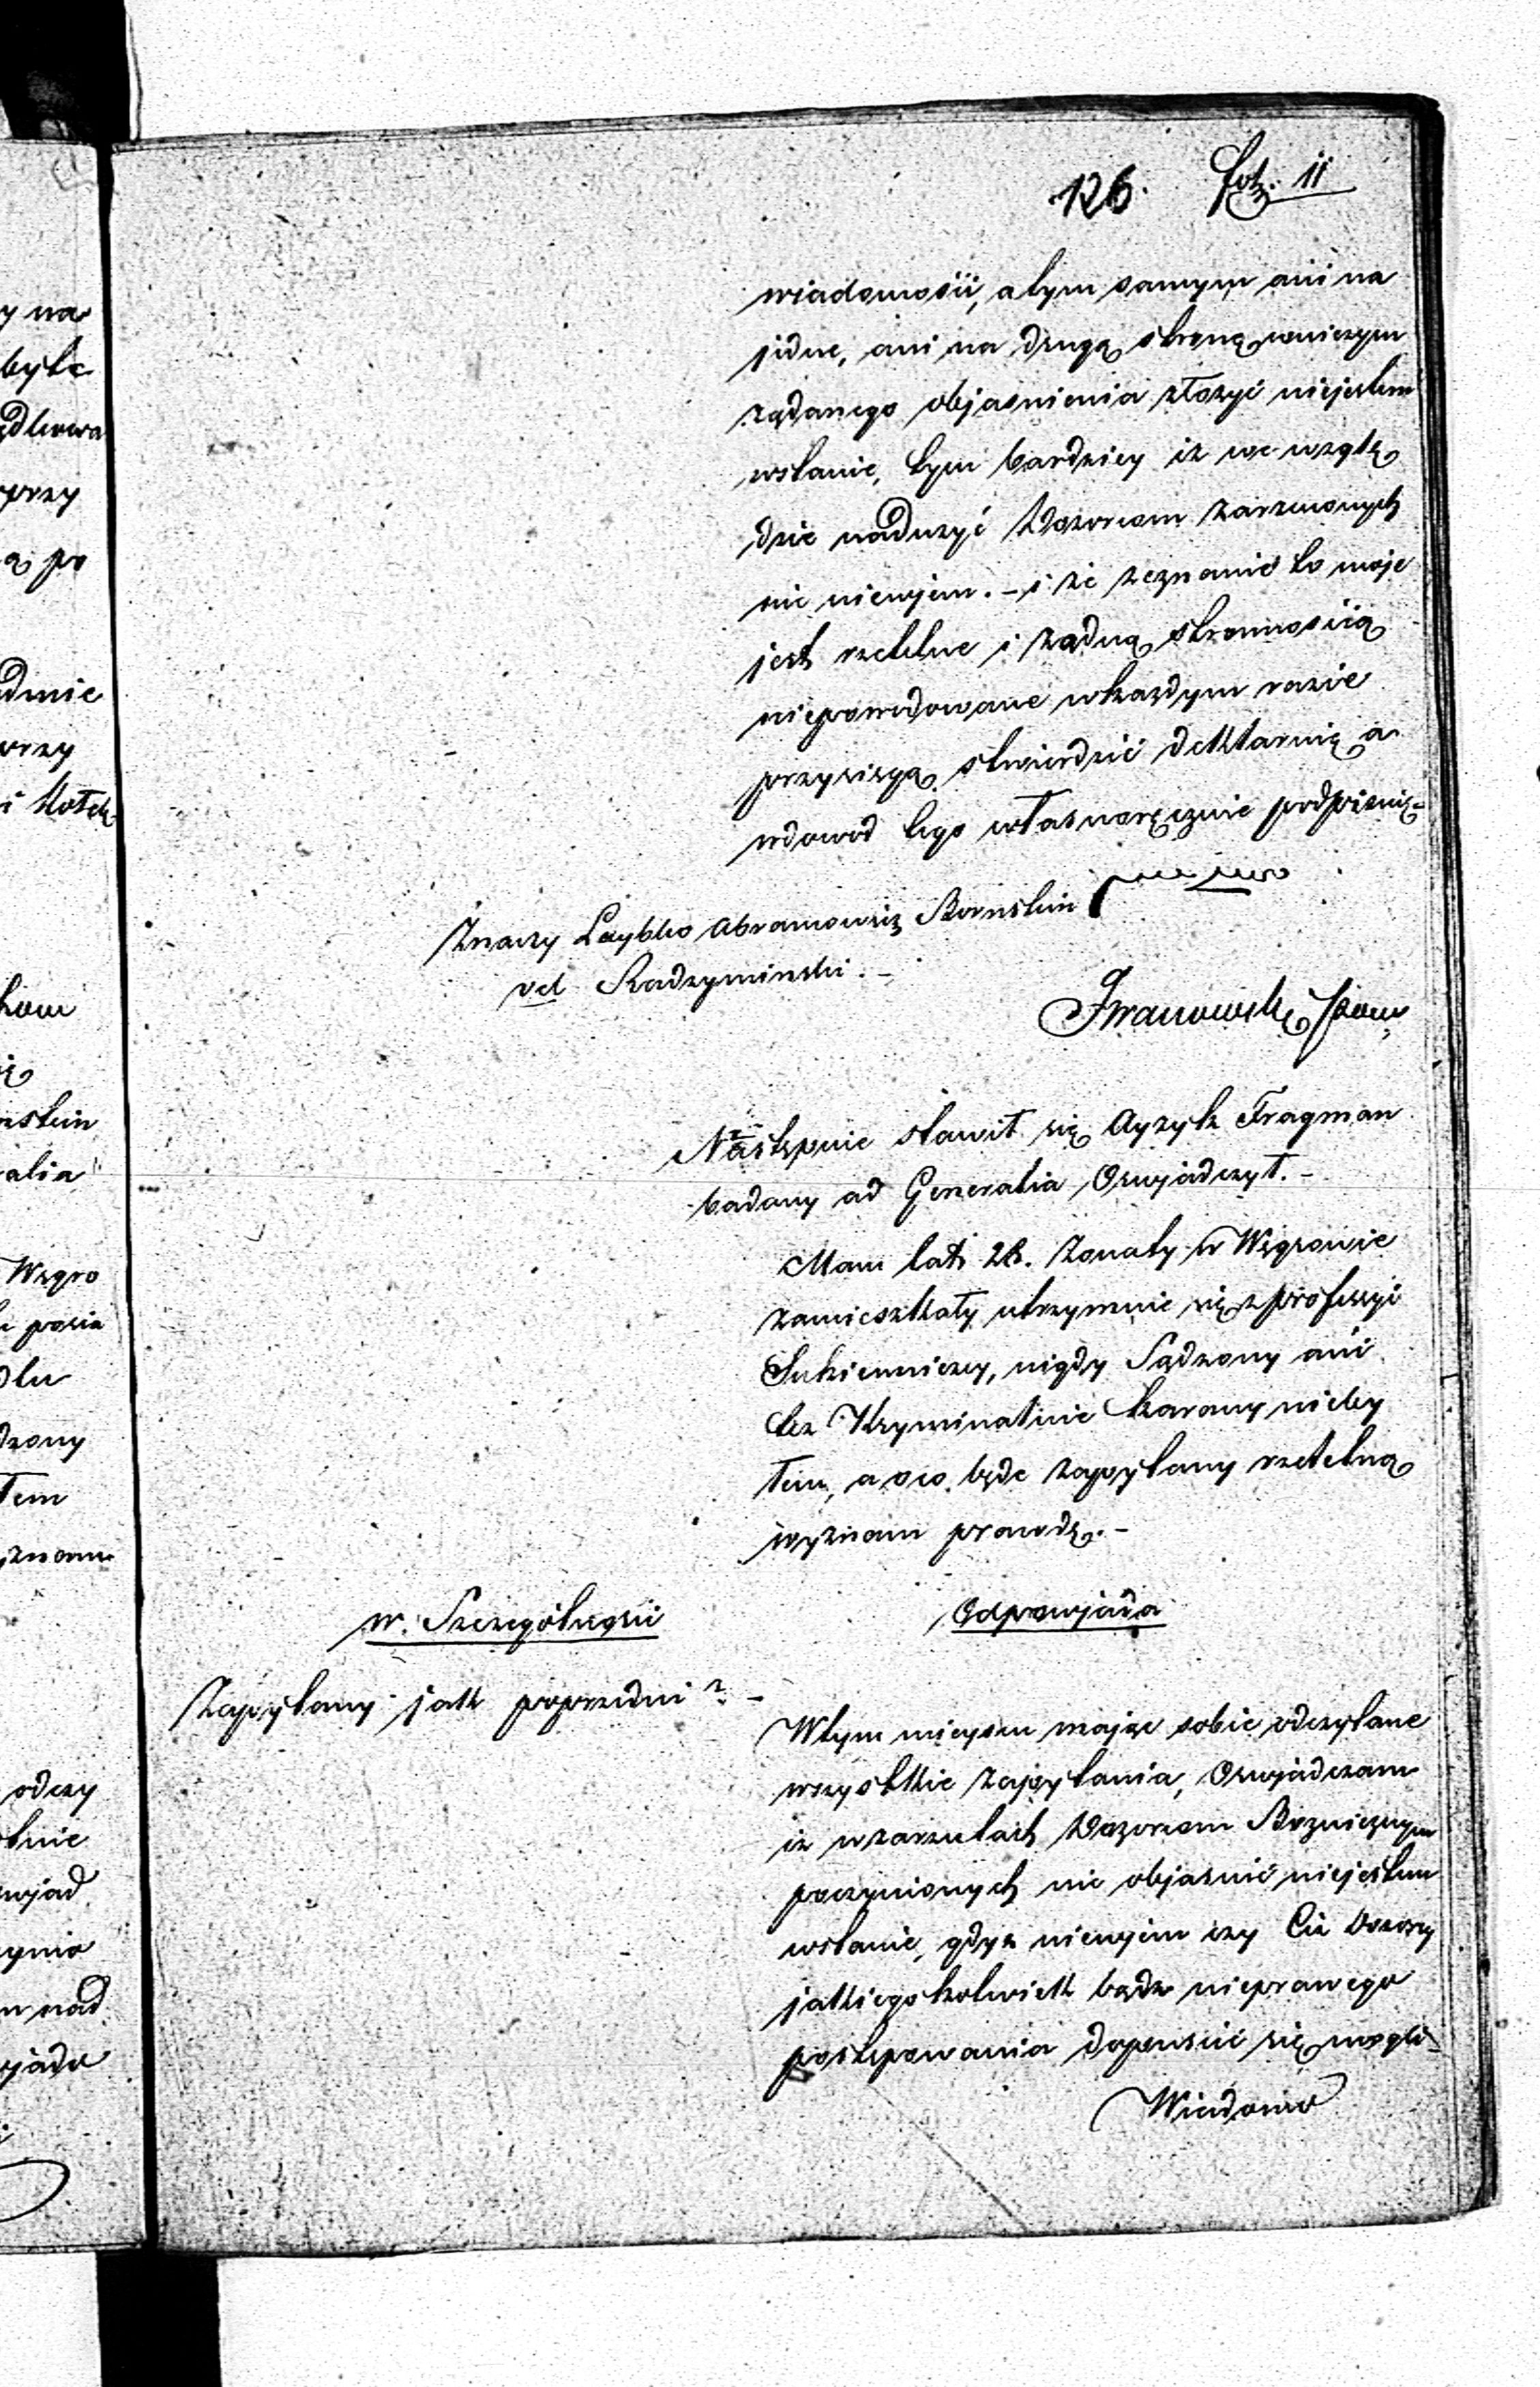 126. fol. 11
wiadomości, a tym samym ani na
jedne, ani na drugą stronę wniczym
żądanego objasnienia złożyć niejestem
wstanie, tym bardziey iż we wzglę
dzie nadużyć Dozorcom zarzuconych
nic niewjem. - i że zeznanie to moje
jest rzetelne i żądną stronnością
niepowodowane wkażdym razie
przysięgą stwierdzić deklaruię a
wdowod tego własnoręcznie podpisuię -
Znaczy Leybko Abramowicz Bornstein
vel Radzyminski. -
Iwanowski
Następnie stawił się Ayzyk Fragman
badany ad Generalia Oswjadczył. -
Mam lat 28. żonaty w Węgrowie
zamieszkały utrzymuie się z professyi
Sukienniczey, nigdy Sądzony ani
też Kryminalnie karany nieby
łem, a oco będe zapytany rzetelną
wyznam prawdę. -
w. Szczegolności
Odpowjada
Zapytany jak poprzedni ? -
Wtym mieyscu mając sobie odczytane
wszystkie zapytania, Oswjadczam
iż wzarzutach Dozorcom Bożniczym
poczynionych nic objasnić niejestem
wstanie, gdyż niewjem czy Ciż Dozorcy
jakiegokolwiek bądz nieprawego
postępowania dopuscić się mogli -
Wiadomo